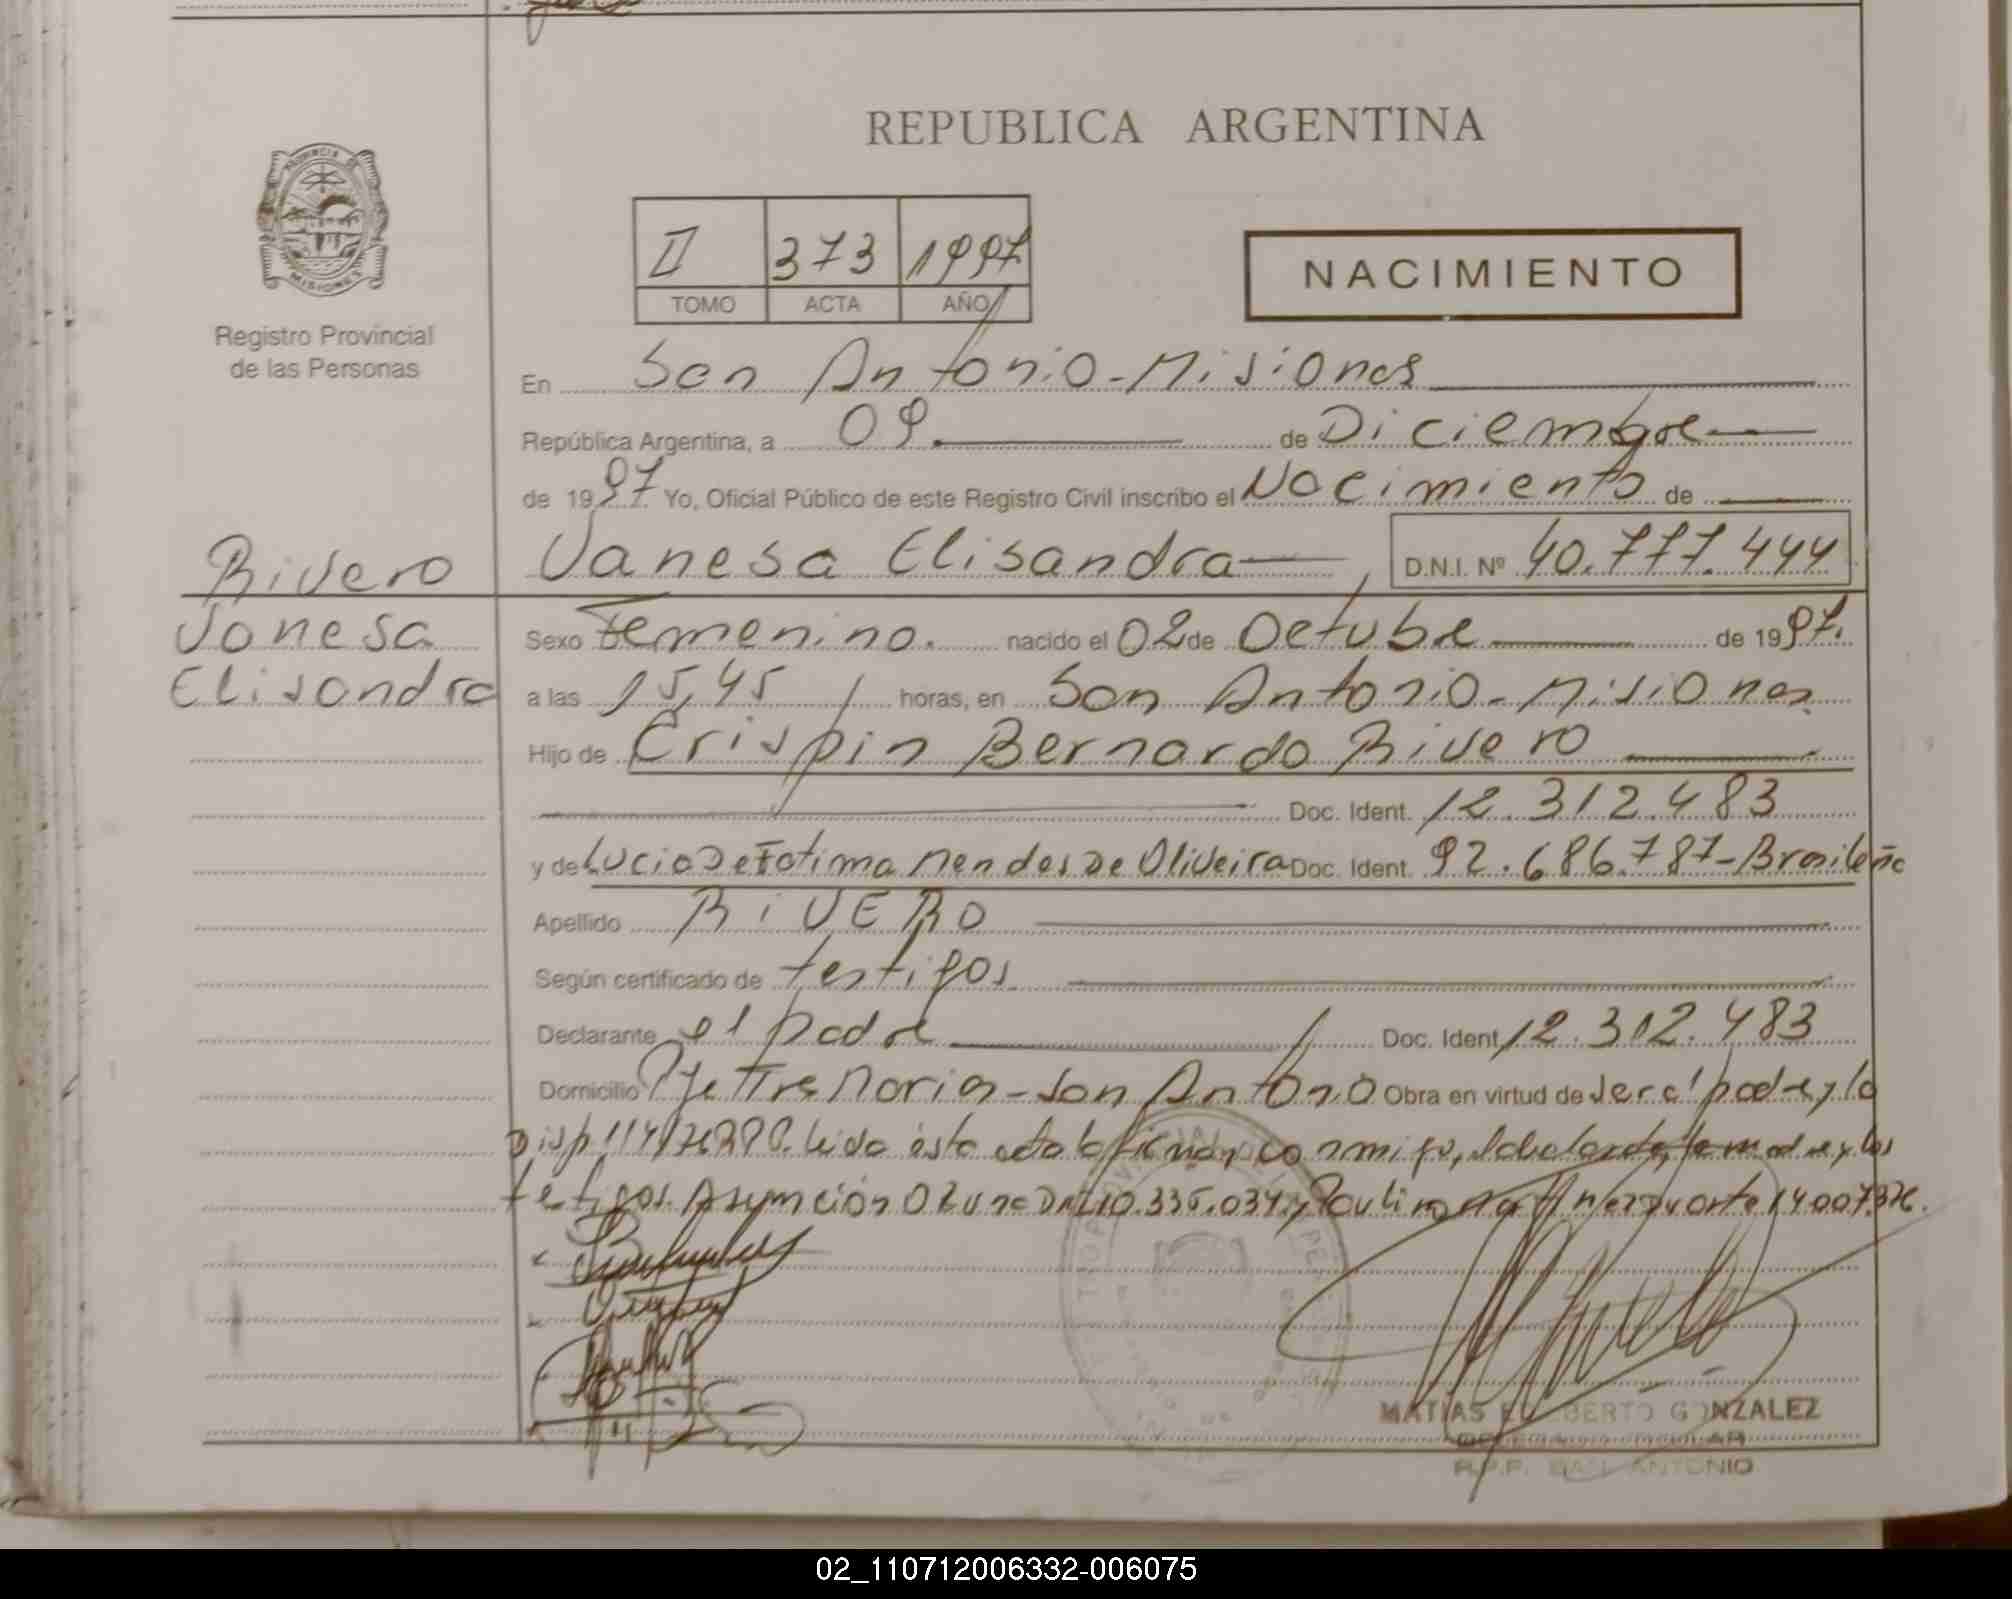 REPUBLICA ARGENTINA
PROVINCIA DE
MISIONES
Registro Provincial
de las Personas
II 373 1997
TOMO ACTA AÑO
NACIMIENTO
En San Antonio - Misiones
República Argentina, a 09 de Diciembre
de 1997 Yo, Oficial Público de este Registro Civil inscribo el Nacimiento de
Rivero
Vanesa
Elisandra
Vanesa Elisandra D.N.I. Nº 40.777.444
Sexo Femenino. nacido el 02 de Octubre de 1997.
a las 15,45 horas, en San Antonio - Misiones
Hijo de Crispin Bernardo Rivero
Doc. Ident. 12.312.483
y de Lucia De Fatima Mendes De Oliveira Doc. Ident. 92.686.787 - Brasileña
Apellido RIVERO
Según certificado de testigos
Declarante el padre Doc. Ident. 12.312.483
Domicilio Pje Tres Marias - San Antonio Obra en virtud de ser el padre y la
Disp. Leida ésta acta la firman conmigo, la madre y los
testigos. Asunción DNI 10.335.034 y Paulino 14.007.376.
MATIAS GONZALEZ
R.P.P. SAN ANTONIO
02_110712006332-006075